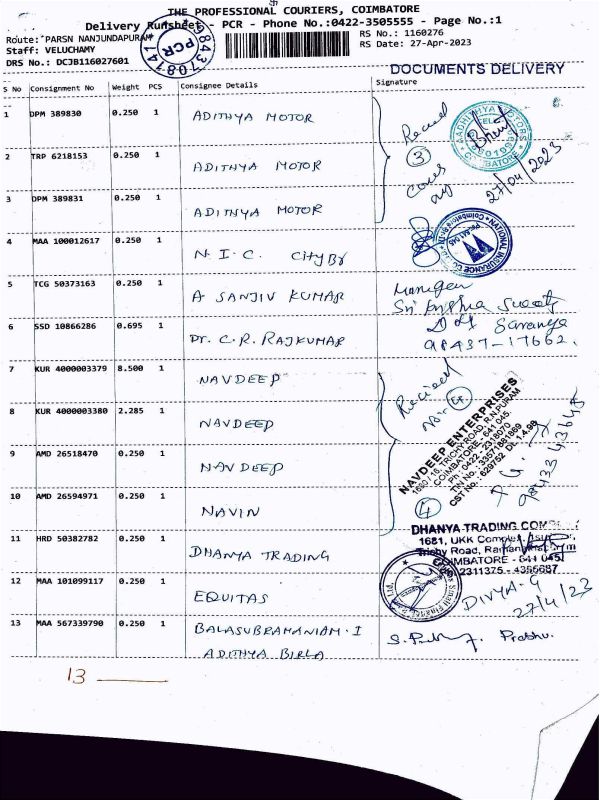 THE PROFESSIONAL COURIERS, COIMBATORE
Delivery Runsheet - PCR - Phone No.:0422-3505555 - Page No.:1
Route: PARSN NANJUNDAPURAM
RS No.: 1160276
Staff: VELUCHAMY
RS Date: 27-Apr-2023
DRS No.: DCJB116027601
PCR
9843708141
DOCUMENTS DELIVERY
S No Consignment No Weight PCS Consignee Details Signature
1 DPM 389830 0.250 1 ADITHYA MOTOR
2 TRP 6218153 0.250 1 ADITHYA MOTOR
3 DPM 389831 0.250 1 ADITHYA MOTOR
Received
3
27/04/2023
4 MAA 100012617 0.250 1 N.I.C. City Br
5 TCG 50373163 0.250 1 A SANJIV KUMAR
Manager
6 SSD 10866286 0.695 1 Dr. C.R. RAJKUMAR
Saranya
98437-17662.
7 KUR 4000003379 8.500 1 NAVDEEP
8 KUR 4000003380 2.285 1 NAVDEEP
9 AMD 26518470 0.250 1 NAVDEEP
10 AMD 26594971 0.250 1 NAVIN
NAVDEEP ENTERPRISES
1680 / 16, TRICHY ROAD, R.N.PURAM
COIMBATORE - 641 045.
Ph : 0422 - 2318070
TIN No : 33571881869
CST No. : 629752 Dt. 1.4.98
4
11 HRD 50382782 0.250 1 DHANYA TRADING
DHANYA TRADING
1681, UKK Complex,
Trichy Road,
COIMBATORE - 641 045
2311375 - 4355687
12 MAA 101099117 0.250 1 EQUITAS
DIVYA-G
27/4/23
13 MAA 567339790 0.250 1 BALASUBRAMANIAM.I
ADITHYA BIRLA
Prabhu.
13